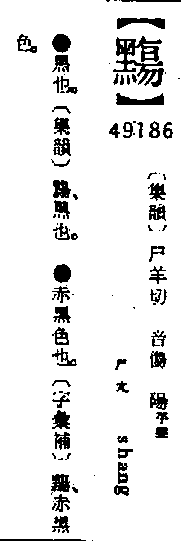 【䵮】
49186
〔集韻〕尸羊切 音傷 陽平聲
ㄕㄤ shang
●黑也。〔集韻〕䵮、黑也。●赤黑色也。〔字彙補〕䵮、赤黑
色。